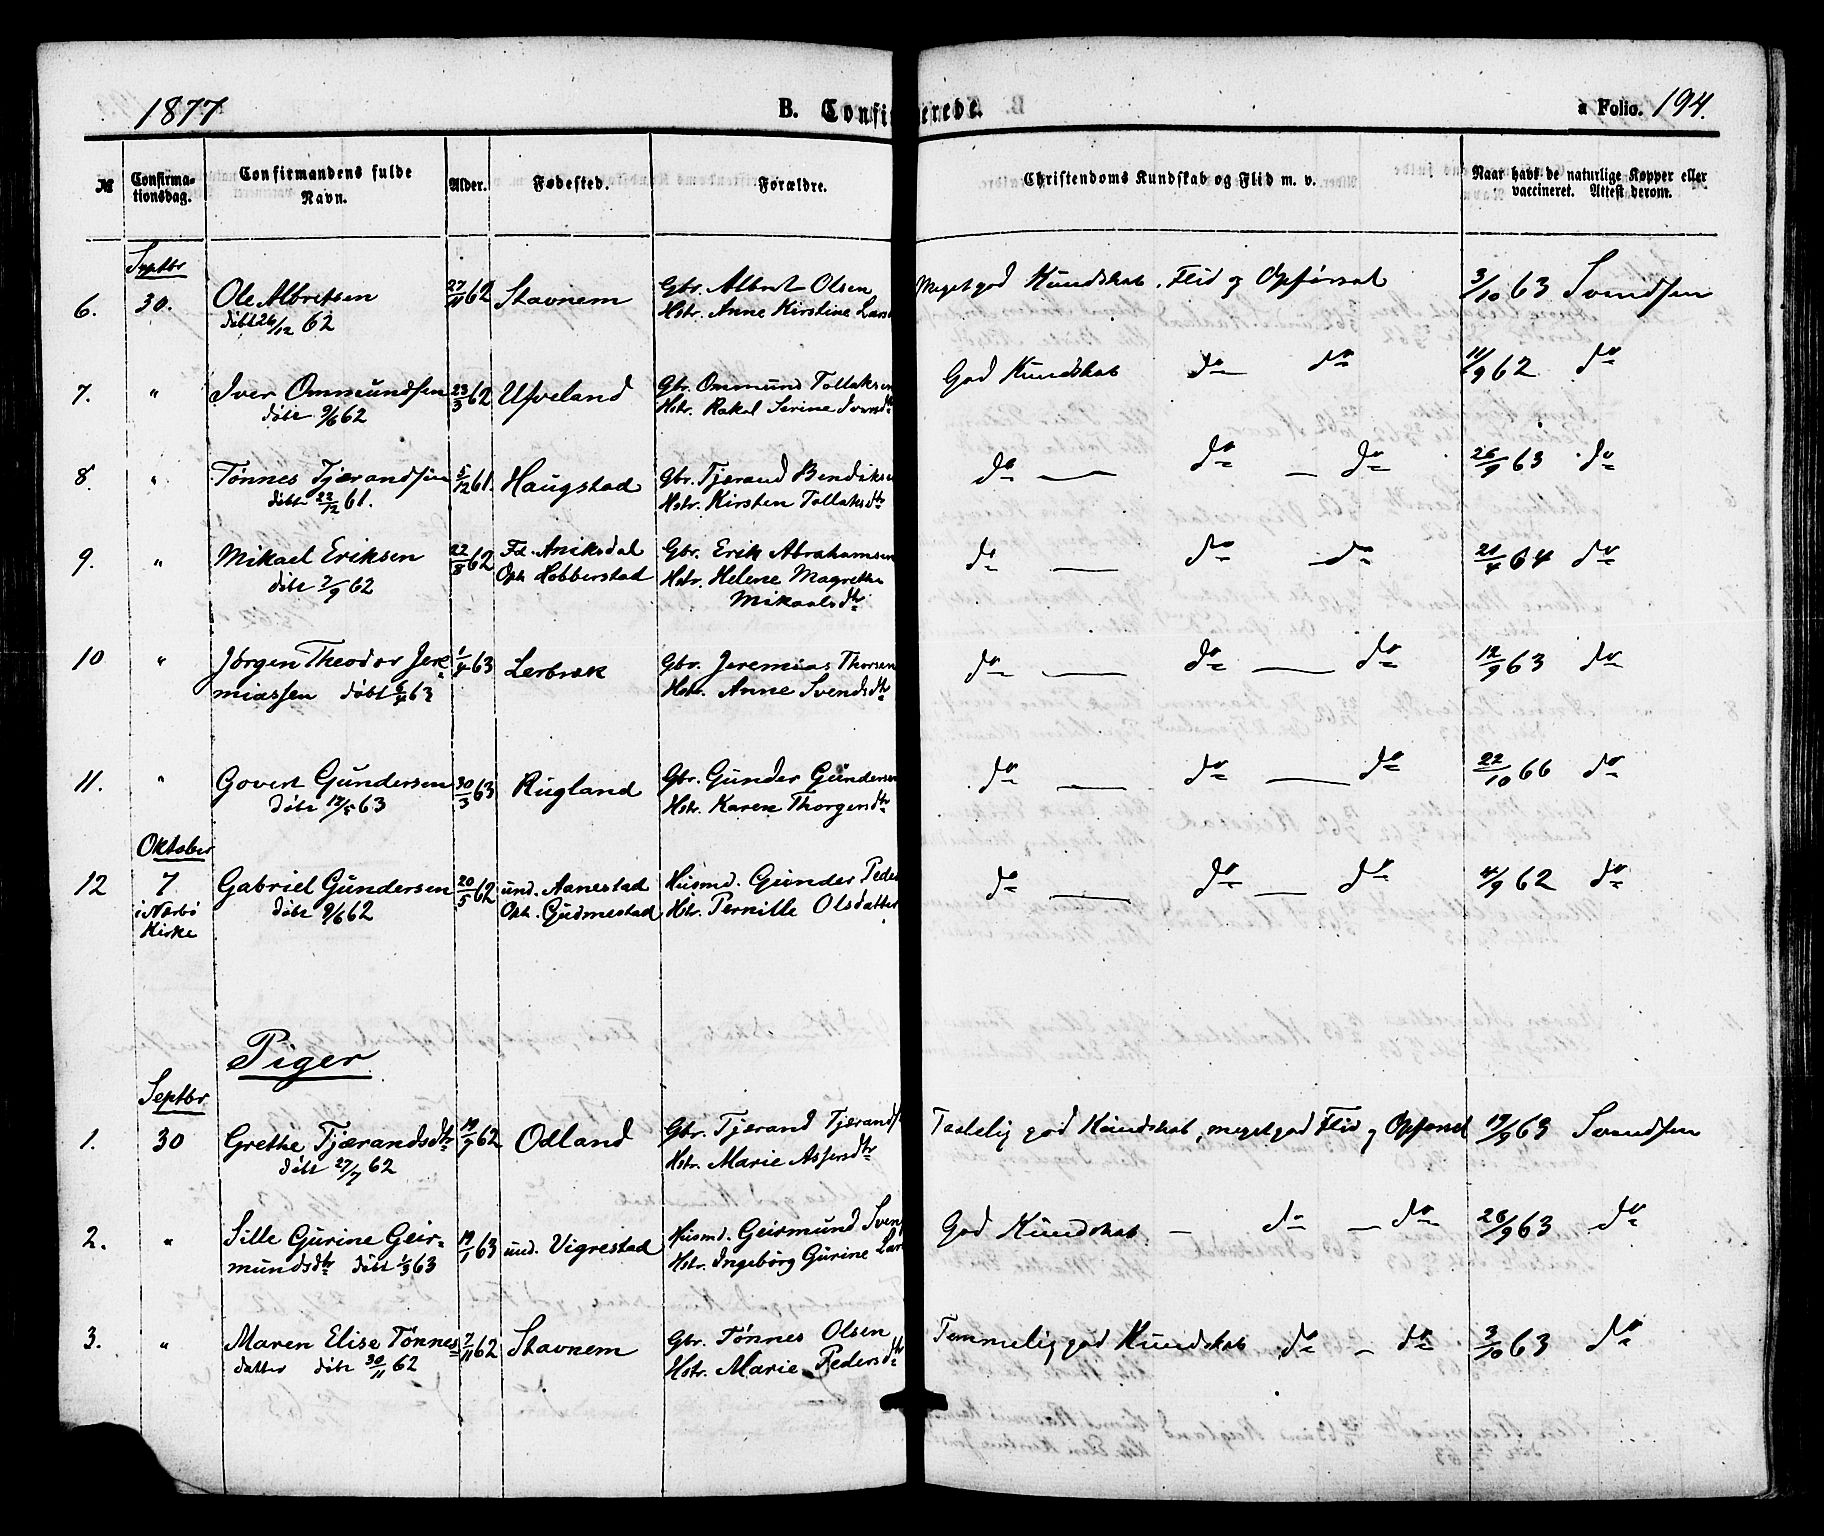 1877 B. Confirmerede. a Folio. 194.
№ Confirma-tionsdag. Confirmandens fulde Navn. Alder. Fødested. Forældre. Christendoms Kundskab og Flid m. v. Naar havt de naturlige Kopper eller vaccineret. Attest derom.
Septbr
6. 30. Ole Albretsen 27/11 62 Stavnem Gbr. Albret Olsen Meget god Kundskab, Flid og Opførsel 3/10 63 Svendsen
døbt 26/12 62 Hstr. Anne Kirstine Lars
7. " Iver Ommundsen 23/3 62 Ufveland Gbr. Ommund Tollaksen God Kundskab do do 11/9 62 do
døbt 9/6 62 Hstr. Rakel Serine Svensdtr
8. " Tønnes Tjærandsen 5/12 61. Haugstad Gbr. Tjærand Bendiksen do — do — do 26/9 63 do
døbt 22/12 61. Hstr. Kirsten Tollaksdtr
9. " Mikael Eriksen 22/8 62 Fd. Aniksdal Gbr. Erik Abrahamsen do — do do 21/4 64 do
døbt 7/9 62 Oph. Hobberstad Hstr. Helene Magrethe
Mikaelsdtr
10 " Jørgen Theodor Jere- 1/4 63 Lerbrek Gbr. Jeremias Thorsen do — do — do 12/9 63 do
miassen døbt 6/4 63 Hstr. Anne Svendsdtr
11. " Govert Gundersen 30/3 63 Rugland Gbr. Gunder Gundersen do — do — do 22/10 66 do
døbt 12/5 63 Hstr. Karen Thorgersdtr
Oktober
12 7 Gabriel Gundersen 20/5 62 und. Aanestad Husmd. Gunder Peder do — do — do 4/9 62 do
i Nærbø døbt 9/6 62 Oph. Gudmestad Hstr. Pernille Olsdatter
Kirke
Piger
Septbr
1. 30 Grethe Tjærandsdtr 19/7 62 Odland Gbr. Tjærand Tjærands Taalelig god Kundskab, meget god Flid og Opførsel 19/9 63 Svendsen
døbt 27/7 62 Hstr. Marie Assersdtr
2. " Sille Gurine Geir- 19/1 63 und. Vigrestad Husmd. Geirmund Sven God Kundskab — do — do 26/9 63 do
mundsdtr døbt 1/3 63 Hstr. Ingeborg Gurine Lar
3. " Maren Elise Tønnes- 7/11 62 Stavnem Gbr. Tønnes Olsen Temmelig god Kundskab do — do 3/10 63 do
datter døbt 30/11 62 Hstr. Marie Pedersdtr